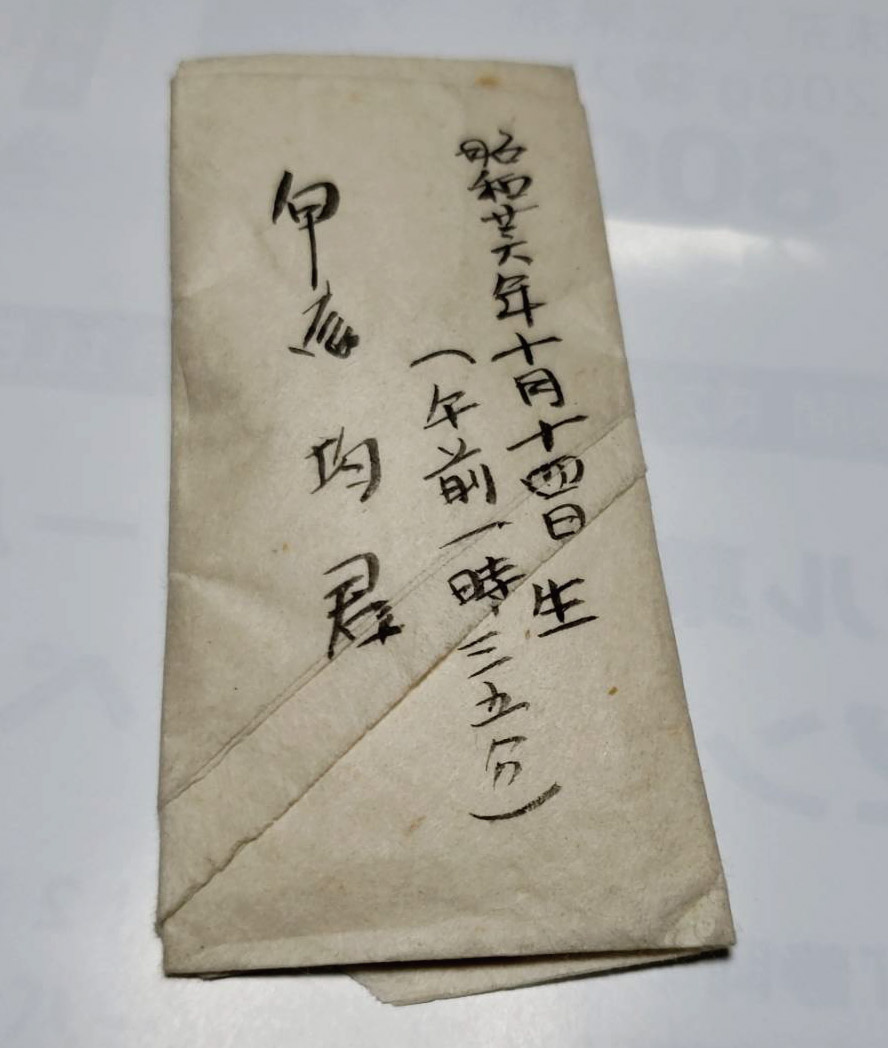 昭和廿六年十月十四日生
(午前一時三五分)
均君